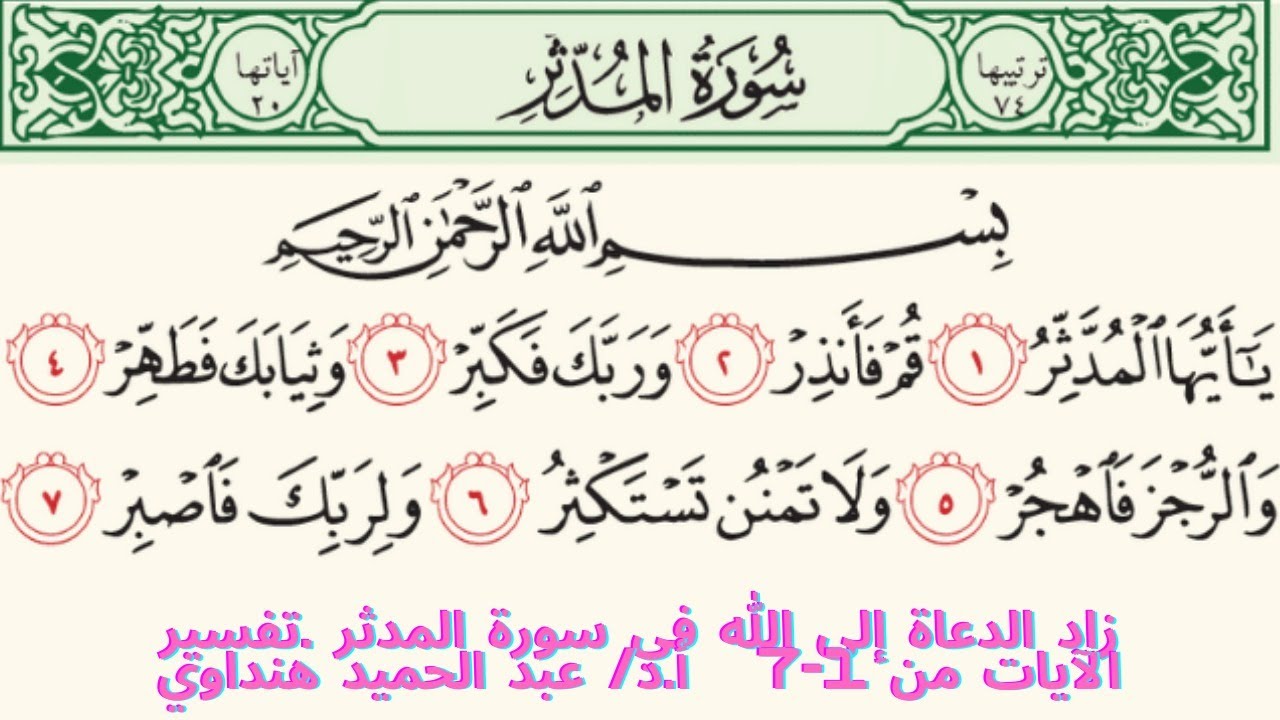 ترتيبها
٧٤
سُورَةُ المُدَّثِّرِ
آياتها
٢٠
بِسْمِ ٱللَّهِ ٱلرَّحْمَٰنِ ٱلرَّحِيمِ
يَٰٓأَيُّهَا ٱلْمُدَّثِّرُ ١ قُمْ فَأَنذِرْ ٢ وَرَبَّكَ فَكَبِّرْ ٣ وَثِيَابَكَ فَطَهِّرْ ٤
وَٱلرُّجْزَ فَٱهْجُرْ ٥ وَلَا تَمْنُن تَسْتَكْثِرُ ٦ وَلِرَبِّكَ فَٱصْبِرْ ٧
زاد الدعاة إلى الله فى سورة المدثر .تفسير
الآيات من 1-7 أ.د/ عبد الحميد هنداوي